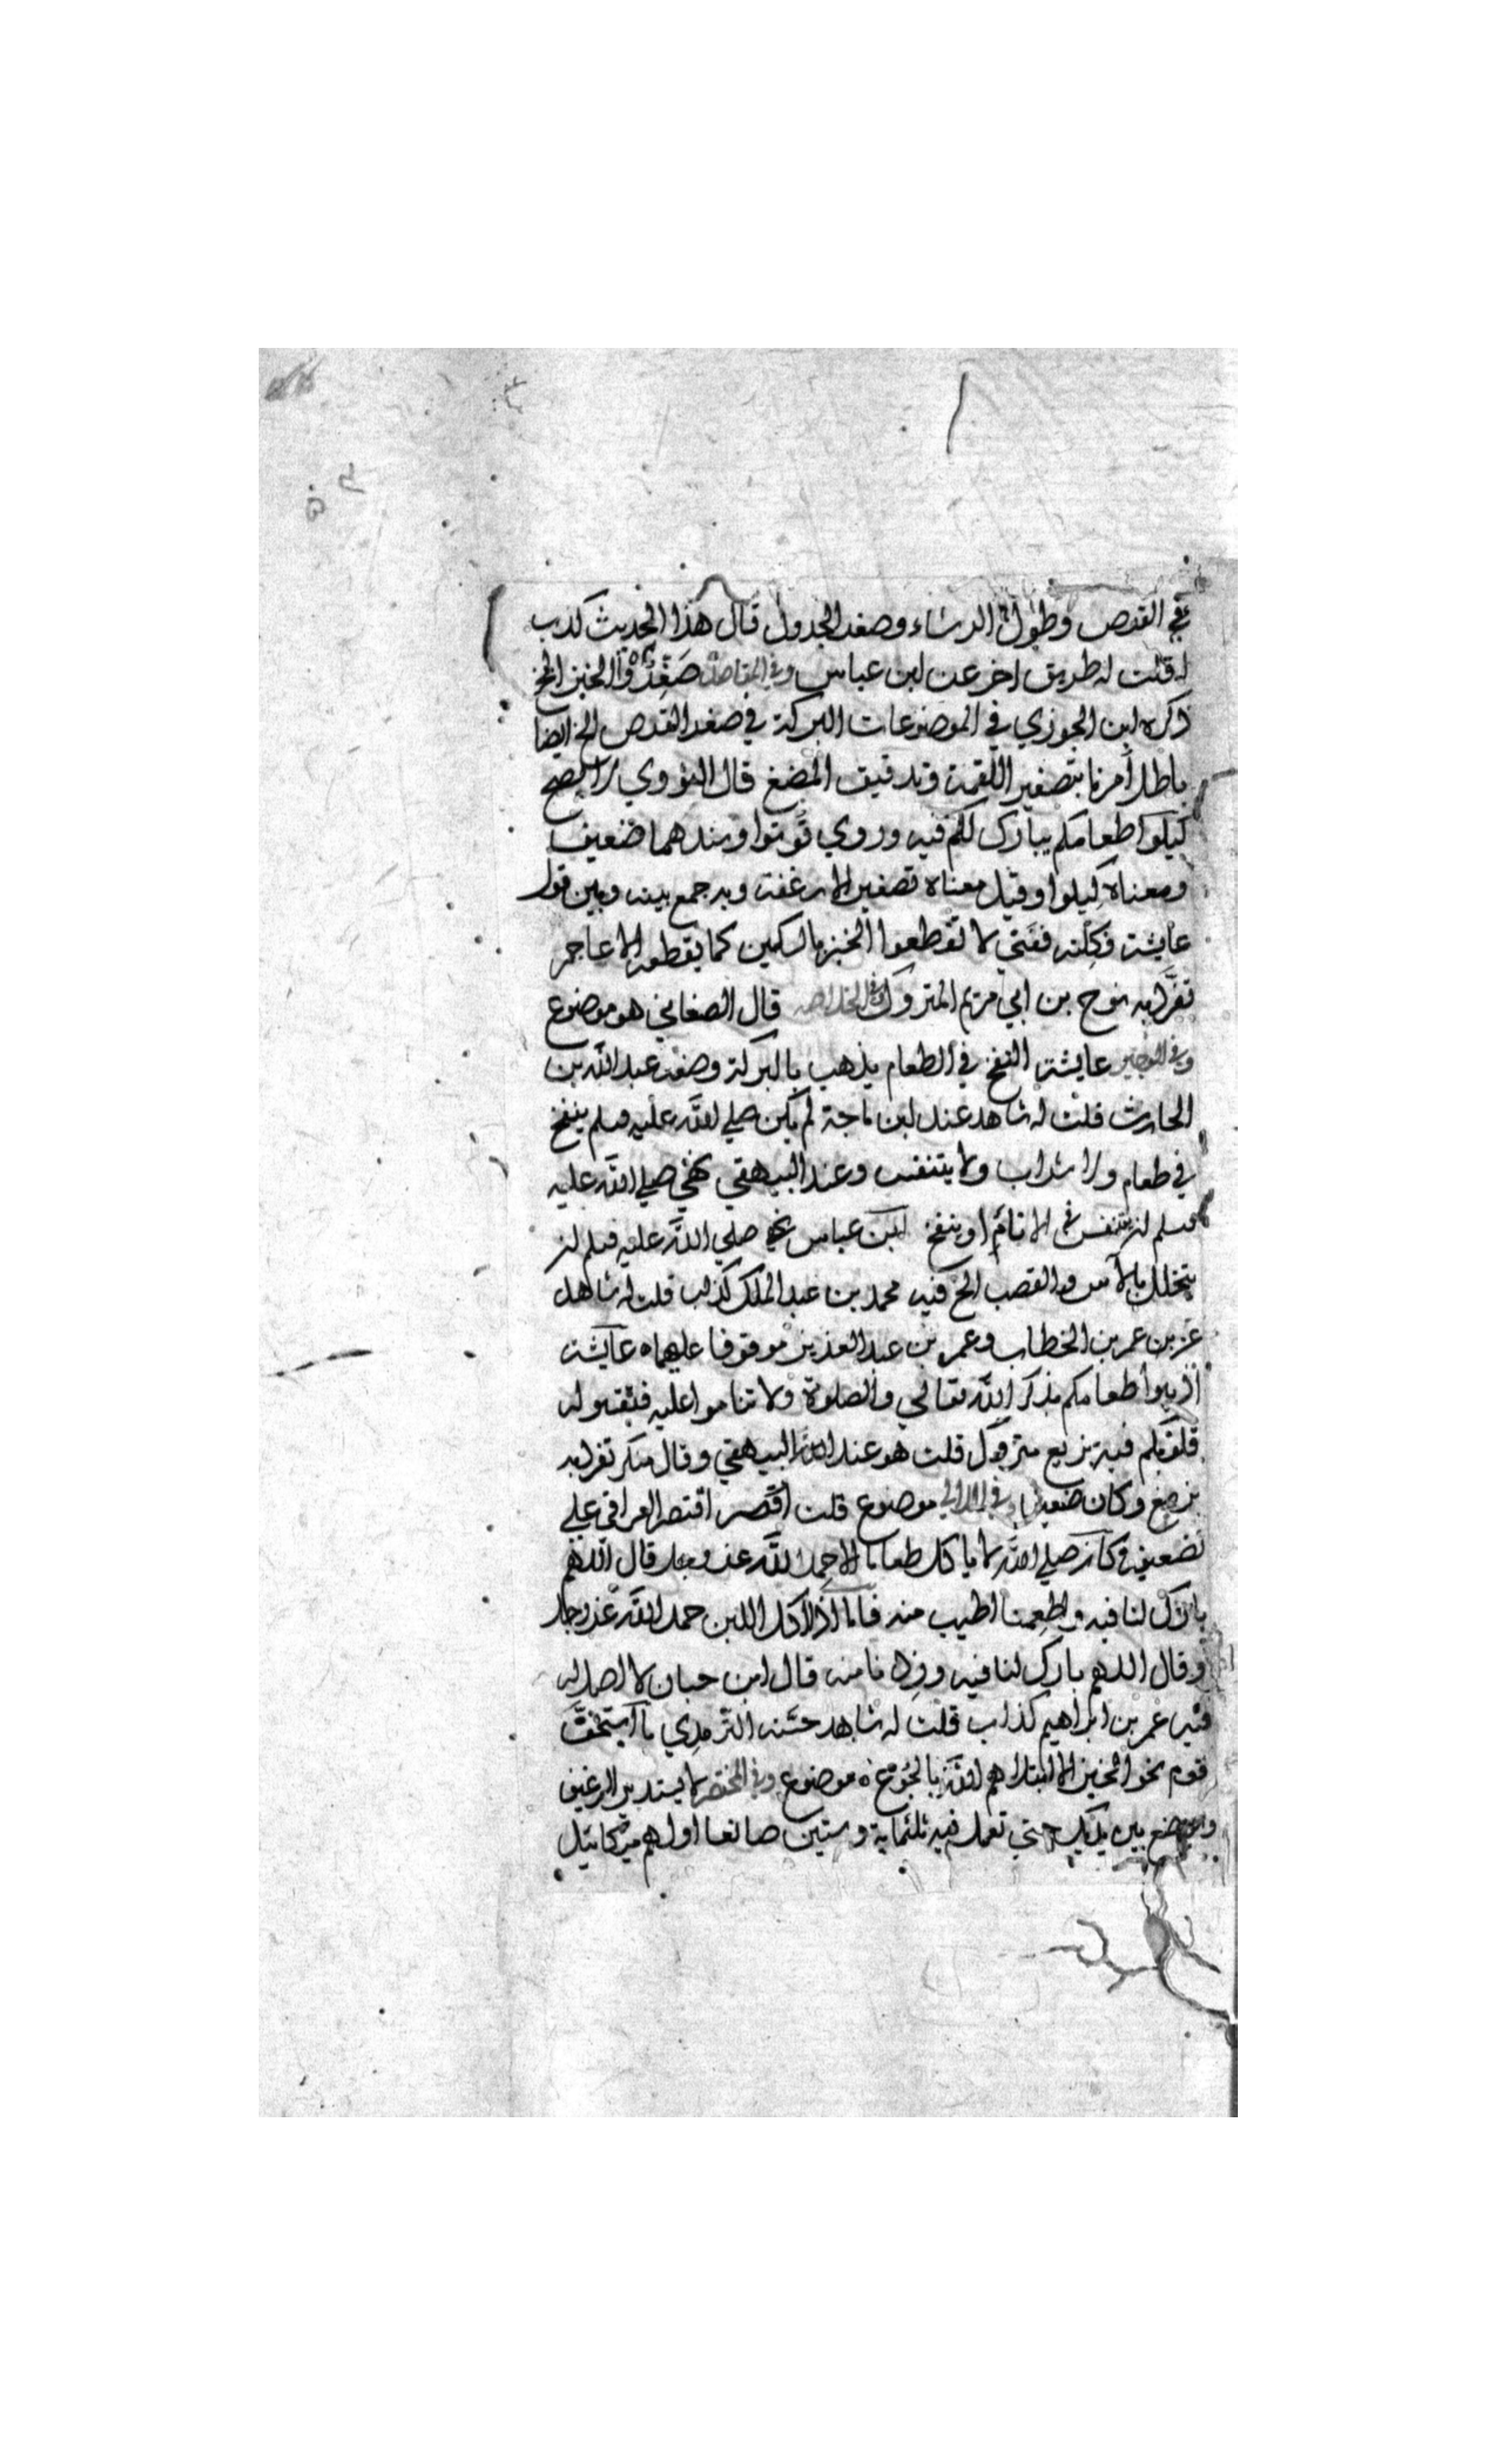 في القرص وطول الرشاء وصغر الجدول قال هذا الحديث كذب
له قلت له طريق اخر عن ابن عباس وفي المقاصد صغروا الخبز الخ
ذكره ابن الجوزي في الموضوعات البركة في صغر القرص الخ ايضا
باطل أمرنا بتصغير اللقمة وتدقيق المضغ قال النووي لا يصح
كيلوا طعامكم يبارك لكم فيه وروي قوتوا وسندهما ضعيف
ومعناه كيلوا وقيل معناه تصغير الارغفة وبه جمع بينه وبين قول
عايشة فكلته ففني لا تقطعوا الخبز بالسكين كما يقطعه الاعاجم
تفرد به نوح بن ابي مريم المتروك وفي الخلاصه قال الصغاني هو موضوع
وفي الوجيز عايشة النفخ في الطعام يذهب بالبركة وضعه عبد الله بن
الحارث قلت له شاهد عند ابن ماجة لم يكن صلي الله عليه وسلم ينفخ
في طعام ولا شراب ولا يتنفس وعند البيهقي نهي صلي الله عليه
وسلم ان يتنفس في الاناء او ينفخ ابن عباس نهي صلي الله عليه وسلم ان
يتخلل بالآس والقصب الخ فيه محمد بن عبد الملك كذاب قلت له شاهد
عن عمر بن الخطاب وعمر بن عبد العزيز موقوفا عليهما ه عايشة
اذيبوا طعامكم بذكر الله تعالي والصلوة ولا تناموا عليه فتقسو له
قلوبكم فيه بزيع متروك قلت هو عند البيهقي وقال منكر تفرد به
بزيع وكان ضعيفا وفي اللالي موضوع قلت اقتصر العراقي علي
تضعيفه كان صلي الله لا ياكل طعاما الا حمد الله عز وجل قال اللهم
بارك لنا فيه واطعمنا اطيب منه فاما اذا اكل اللبن حمد الله عز وجل
وقال اللهم بارك لنا فيه وزدنا منه قال ابن حبان لا اصل له
فيه عمر بن ابراهيم كذاب قلت له شاهد حسنه الترمذي ما استخف
قوم بحق الخبز الا ابتلاهم الله بالجوع ه موضوع وفي المختصر لا يستدير الرغيف
ويوضع بين يديك حتي تعمل فيه ثلثماية وستين صانعا اولهم ميكائيل